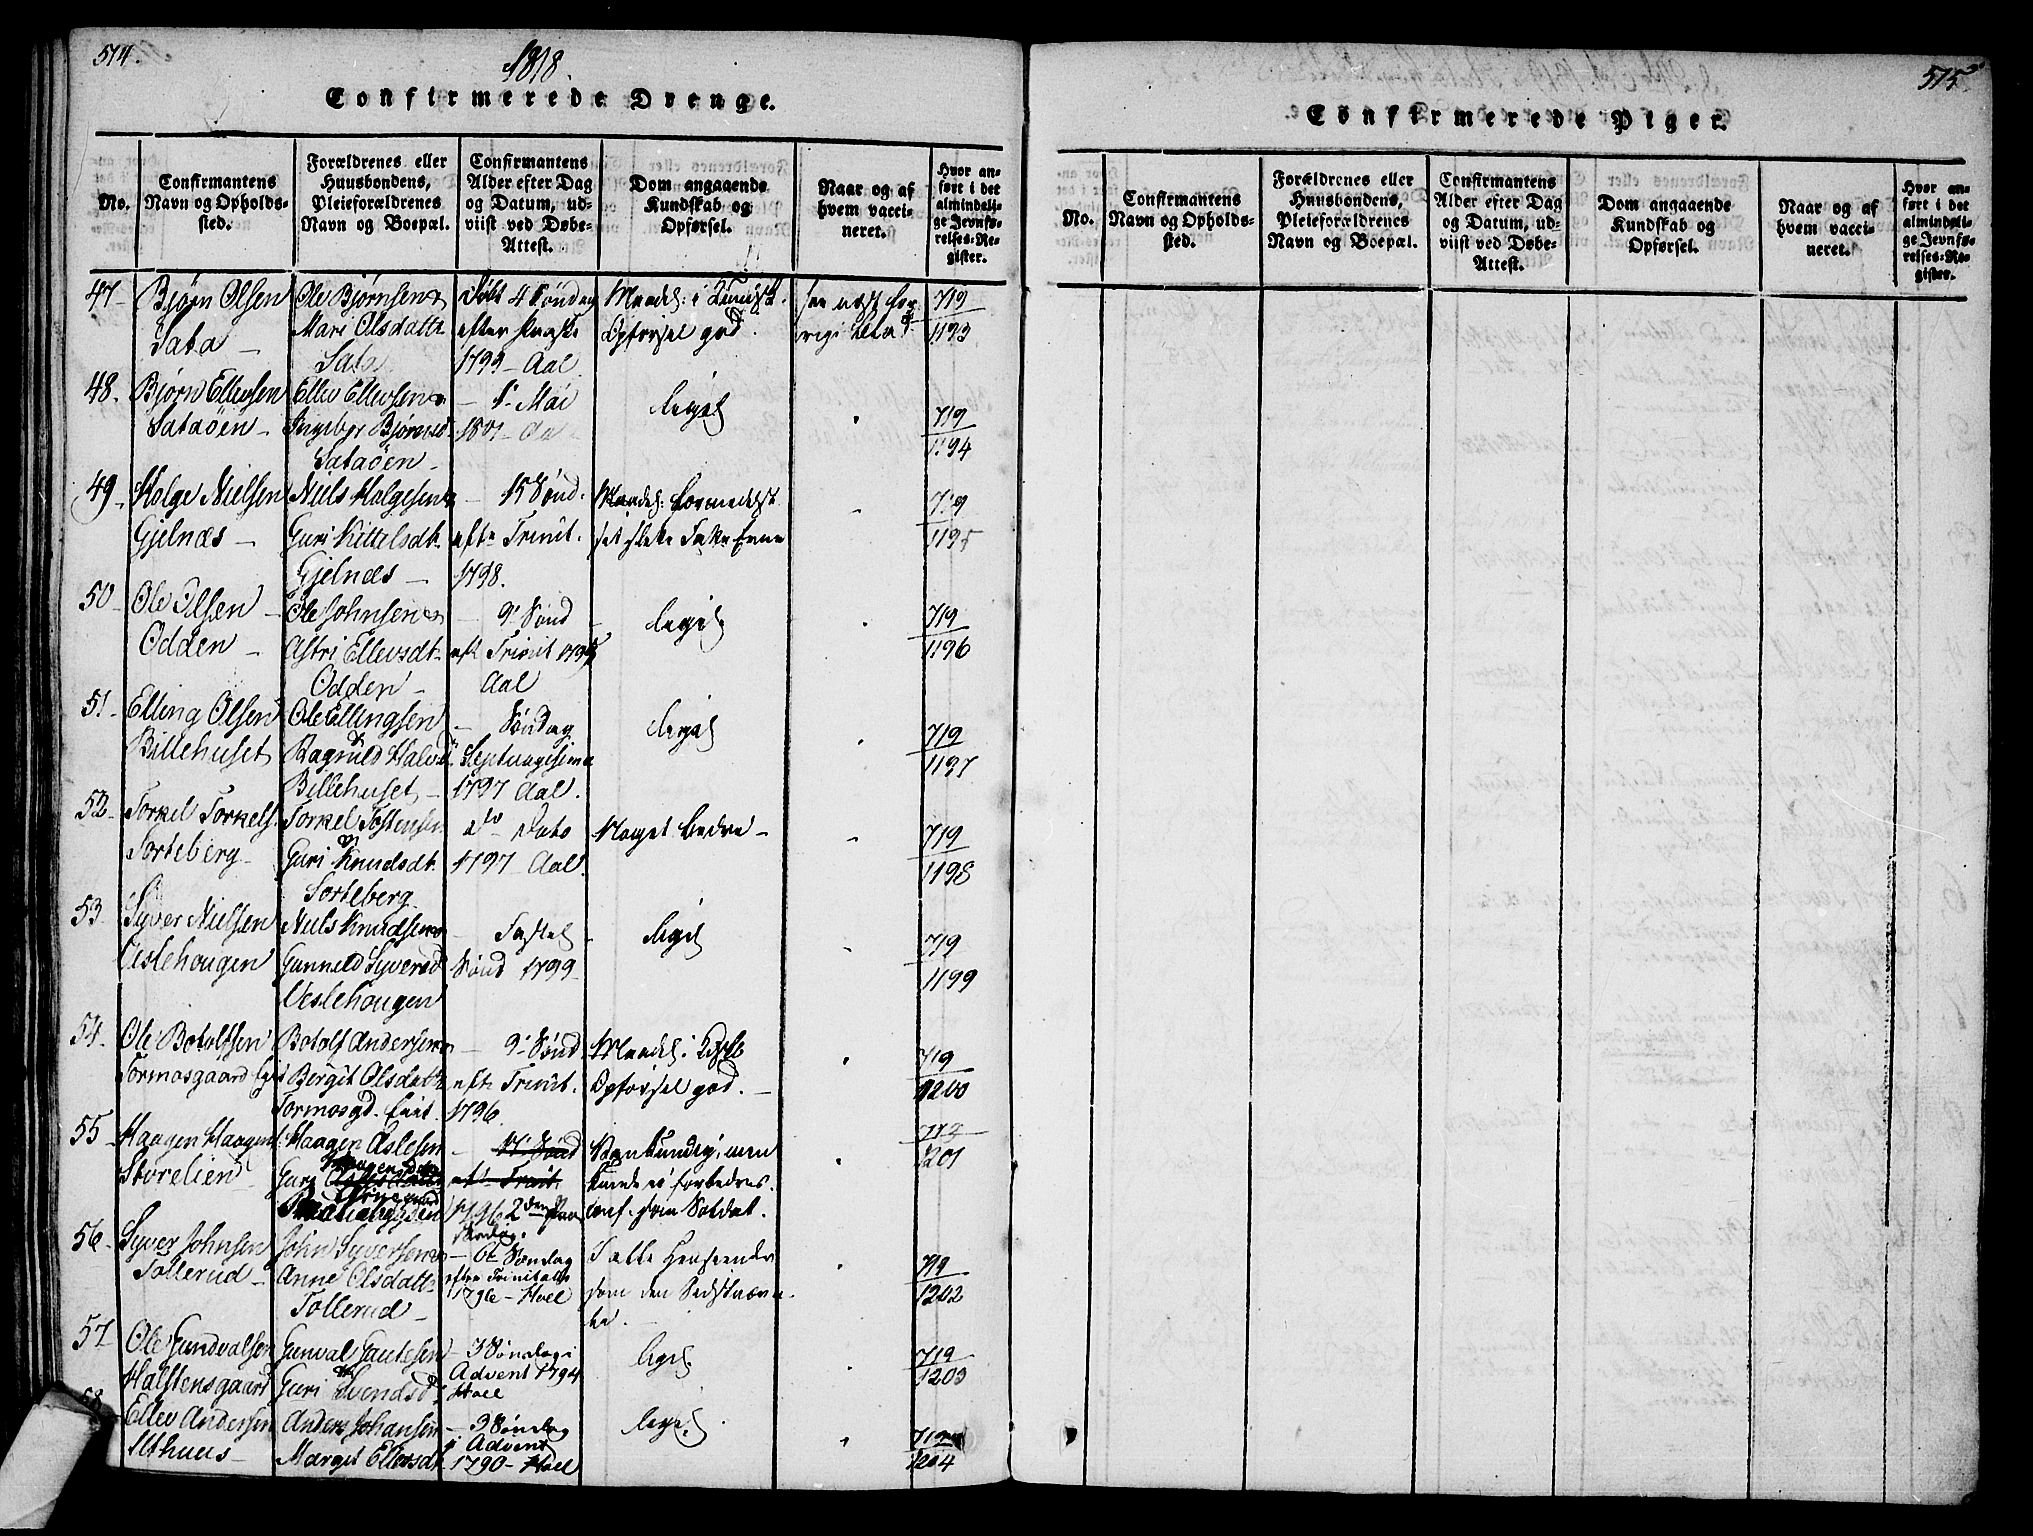 514.
1818.
Confirmerede Drenge.
No.
Confirmantens
Navn og Opholds-
sted.
Forældrenes eller
Huusbondens,
Pleieforældrenes
Navn og Boepæl.
Confirmantens
Alder efter Dag
og Datum, ud-
viist ved Døbe-
Attest.
Dom angaaende
Kundskab og
Opførsel.
Naar og af
hvem vacci-
neret.
Hvor an-
ført i det
almindeli-
ge Jevnfø-
relses-Re-
gister.
47-
Bjørn Olsen
Sata
Ole Bjørnsen
Mari Olsdattr
Sata
Døbt 4 Søndag
efter Paaske
1799- Aal.
Maadel: i Kundsk.
Opførsel god.
719
1193
48.
Bjørn Ellevsen
Sataöen
Ellev Ellevsen
Ingebor Bjørnsd
Sataöen
- 1. Mai
1801- Aal
ligel
719
1194
49
Holge Nielsen
Gjelnæs
Niels Holgesen
Guri Kittelsdt.
Gjelnæs
- 15 Sønd.
efte Trinit.
1798.
Maadel: formedelst
719
1195
50
Ole Olsen
Odden
Ole Johnsen
Astri Ellevsdt
Odden
9. Sønd
eft Trinit
Aal
ligel
719
1196
51.
Elling Olsen
Billehuset
Ole Ellingsen
Ragnild Halvd
Billehuset
- Søndag
Septuagesima
1797 Aal.
ligel
719
1197
52
Torkel Torkels.
Sorteberg
Torkel Tostensen
Guri Knudsdt.
Sorteberg
do Dato
1797 Aal.
Noget bedre
719
1198
53
Syver Nielsen
Veslehougen
Niels Knudsen
Gunnild Syversd
Veslehougen
- Fastel
Sønd 1799
ligel
719
1199
54.
Ole Botolfsen
Tormosgaard
Botolf Andersen
Bergit Olsdattr
Tormosgd.
- 9. Sønd
efte Trinit.
1796
Maadel:
Opførsel god.
719
1200
55
Haagen Haagens:
Storelien
Haagen Aslesen
Guri
- 17. Sønd
eft. Trinit.
1796 2den
Søndag.
Vankundig, men
kunde ei forbedres.
conf. som Soldat.
1201
56
Syver Johnsen
Tollerud
John Syversen
Anne Olsdatt
Tollerud
- 6te Søndag
efter Trinitatis
1796 - Hoel
I alle Henseender
som den Sidstnævn-
te.
719
1202
57
Ole Gundvalsen
Halstensgaard
Gunval Gautesen
Guri Svendsd
- 3 Søndag i
Advent 1794
Hoel
ligel
719
1203
58
Ellev Andersen
Althuus
Anders Johansen
Margit Ellevsdt
- 3 Søndag
i Advent
1790- Hoel
ligel
719
1204
575
Confirmerede Piger.
No.
Confirmantens
Navn og Opholds-
sted.
Forældrenes eller
Huusbondens,
Pleieforældrenes
Navn og Boepæl.
Confirmantens
Alder efter Dag
og Datum, ud-
viist ved Døbe-
Attest.
Dom angaaende
Kundskab og
Opførsel.
Naar og af
hvem vacci-
neret.
Hvor an-
ført i det
almindeli-
ge Jevnfø-
relses-Re-
gister.